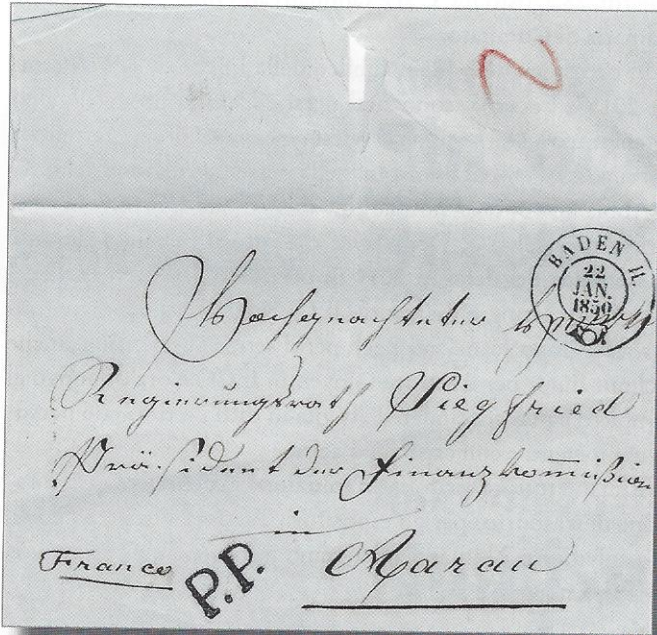 2
BADEN II.
22
JAN.
1850
Hochgeachteter Herrn
Regierungsrath Siegfried
Präsident der Finanzkommißion
in
Franco P.P. Aarau